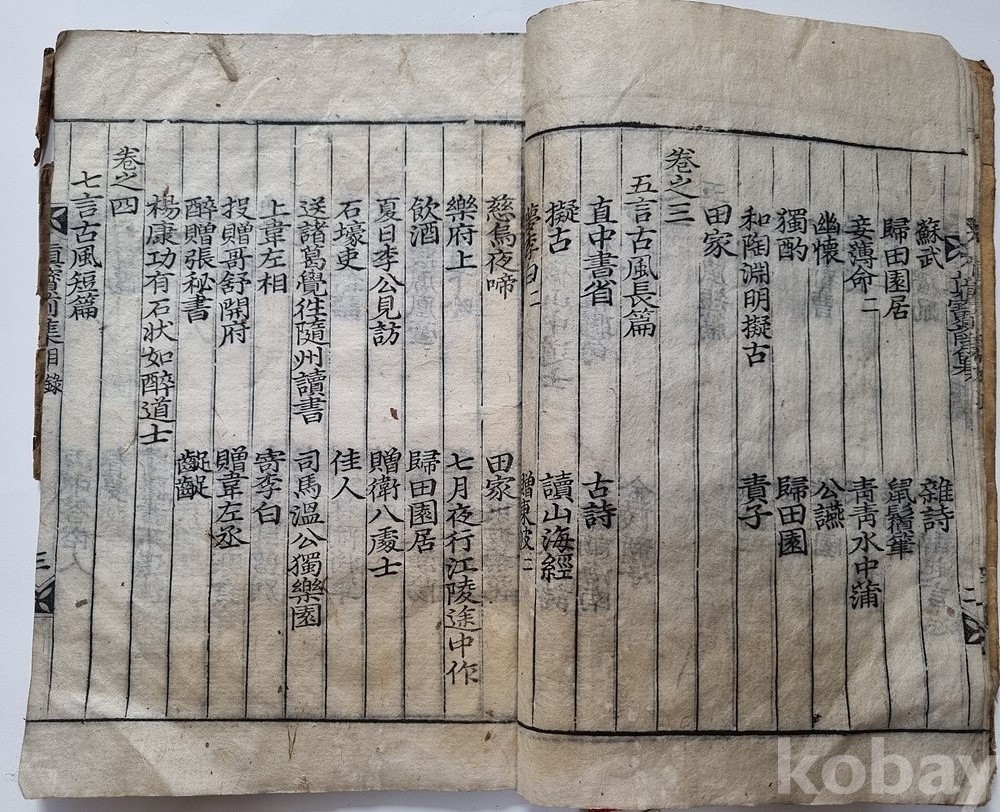 蘇武 雜詩
歸田園居 鼠鬚筆
妾薄命二 靑靑水中蒲
幽懷 公讌
獨酌 歸田園
和陶淵明擬古 責子
田家
卷之三
五言古風長篇
直中書省 古詩
擬古 讀山海經
夢李白二 贈東坡二
慈烏夜啼 田家
樂府上 七月夜行江陵途中作
飮酒 歸田園居
夏日李公見訪 贈衛八處士
石壕吏 佳人
送諸葛覺往隨州讀書 司馬溫公獨樂園
上韋左相 寄李白
投贈哥舒開府 贈韋左丞
醉贈張秘書 齪齪
楊康功有石狀如醉道士
卷之四
七言古風短篇
眞寶前集目錄 三
kobay